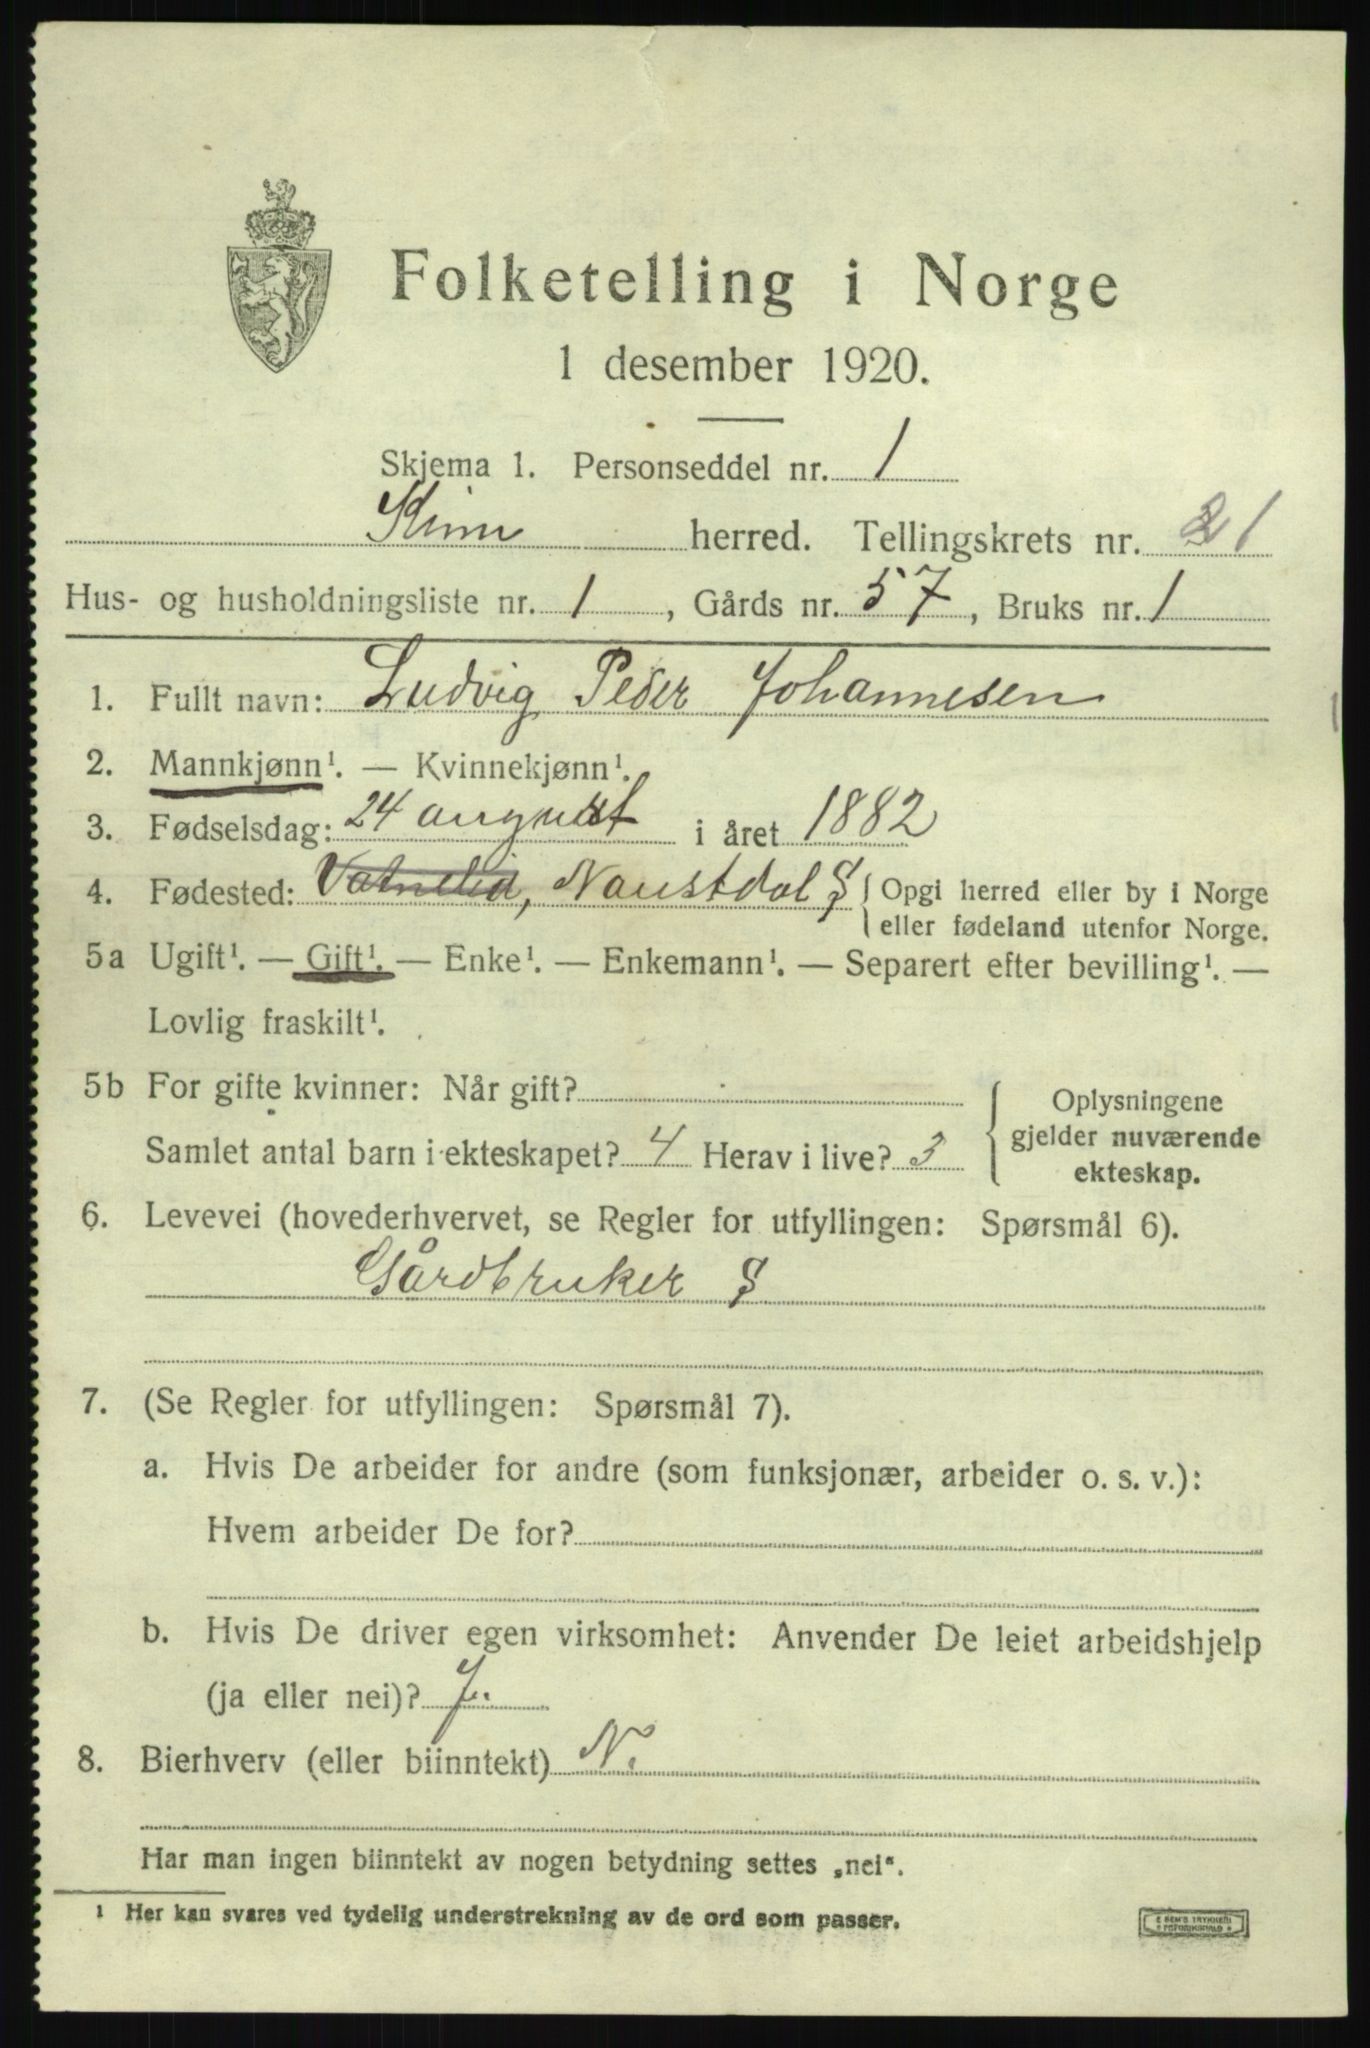 Folketelling i Norge
1 desember 1920.
Skjema 1. Personseddel nr. 1
Kinn herred. Tellingskrets nr. 21
Hus- og husholdningsliste nr. 1, Gårds nr. 57, Bruks nr. 1
1. Fullt navn: Ludvig Peder Johannesen
2. Mannkjønn¹. — Kvinnekjønn¹.
3. Fødselsdag: 24 august i året 1882
4. Fødested: Vatnelid, Naustdal S {Opgi herred eller by i Norge
eller fødeland utenfor Norge.
5a Ugift¹. — Gift¹. — Enke¹. — Enkemann¹. — Separert efter bevilling¹. —
Lovlig fraskilt¹.
5b For gifte kvinner: Når gift?
Samlet antal barn i ekteskapet? 4 Herav i live? 3
Oplysningene
gjelder nuværende
ekteskap.
6. Levevei (hovederhvervet, se Regler for utfyllingen: Spørsmål 6).
Gårdbruker S
7. (Se Regler for utfyllingen: Spørsmål 7).
a. Hvis De arbeider for andre (som funksjonær, arbeider o. s. v.):
Hvem arbeider De for?
b. Hvis De driver egen virksomhet: Anvender De leiet arbeidshjelp
(ja eller nei)? J.
8. Bierhverv (eller biinntekt) N.
Har man ingen biinntekt av nogen betydning settes „nei“.
¹ Her kan svares ved tydelig understrekning av de ord som passer.